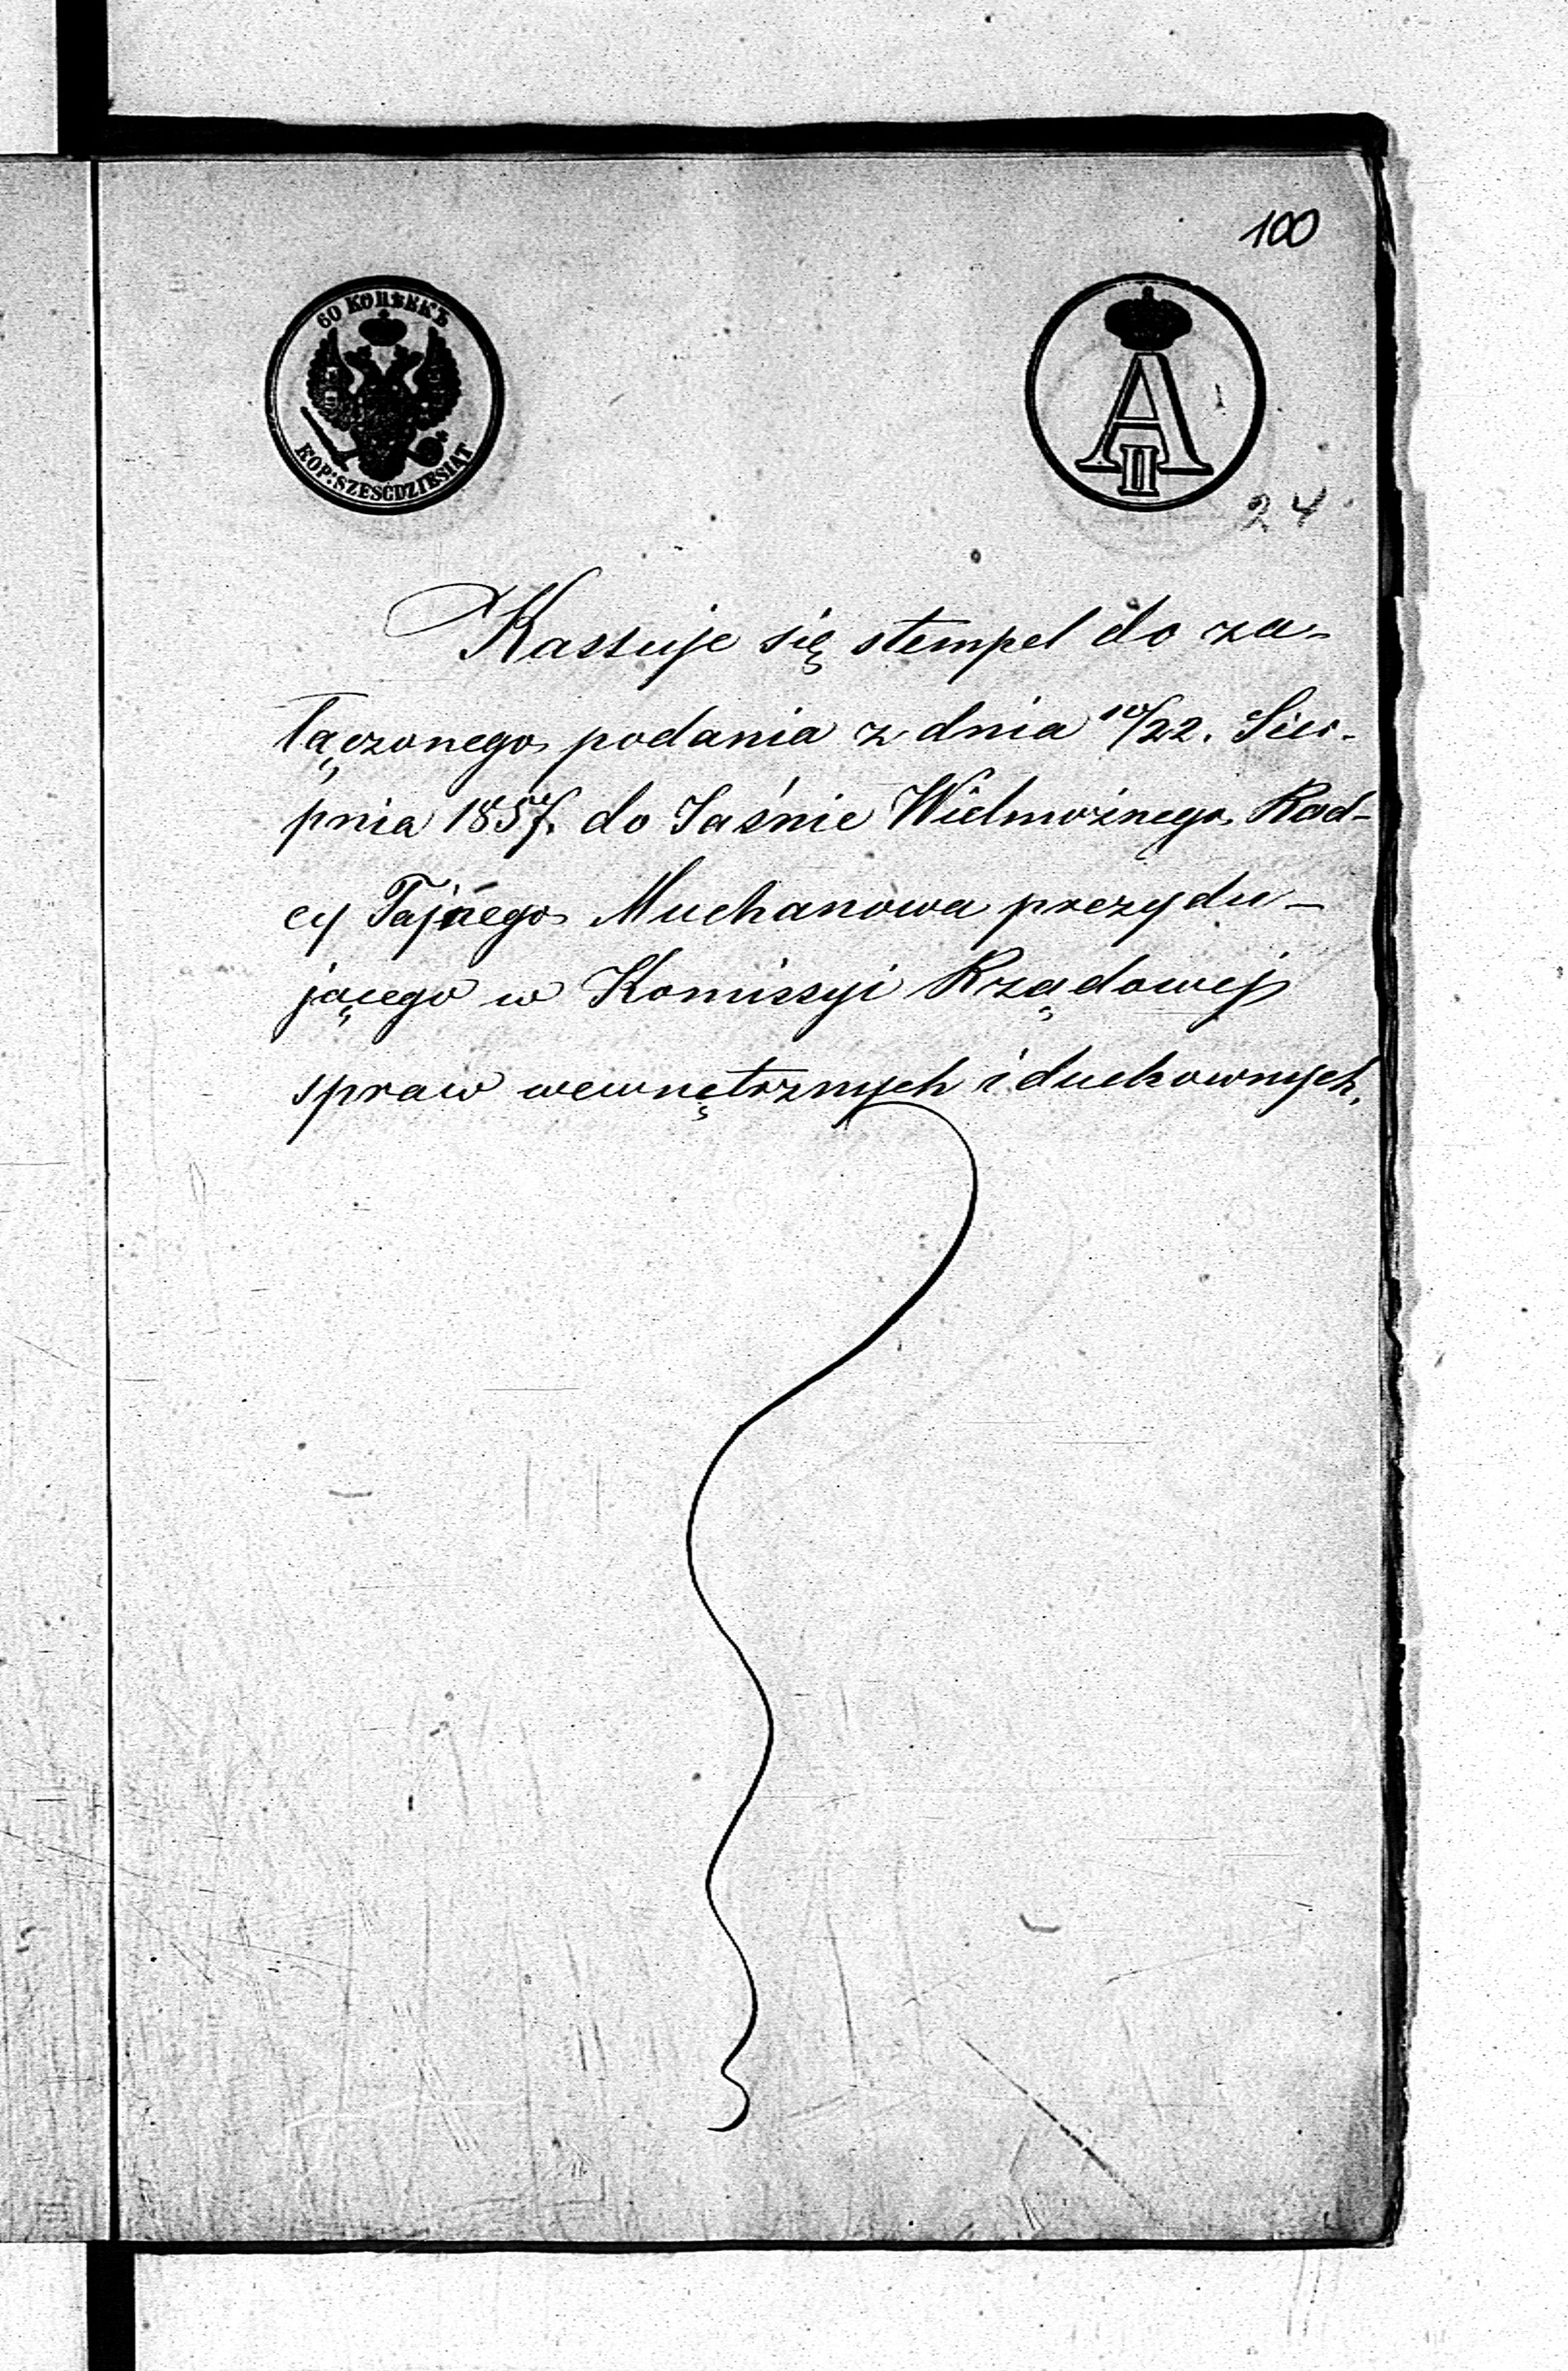 100
60 КОПѢЕКЪ
KOP: SZEŚĆDZIESIĄT
A
II
24
Kassuje się stempel do za-
łączonego podania z dnia 10/22. Sier-
pnia 1857. do Jaśnie Wielmożnego Rad-
cy Tajnego Muchanowa prezydu-
jącego w Komissyi Rządowej
spraw wewnętrznych i duchownych.